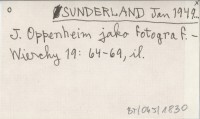 SUNDERLAND Jan 1949.
J. Oppenheim jako fotograf. -
Wierchy 19: 64-69, il.
BJ/065/1830